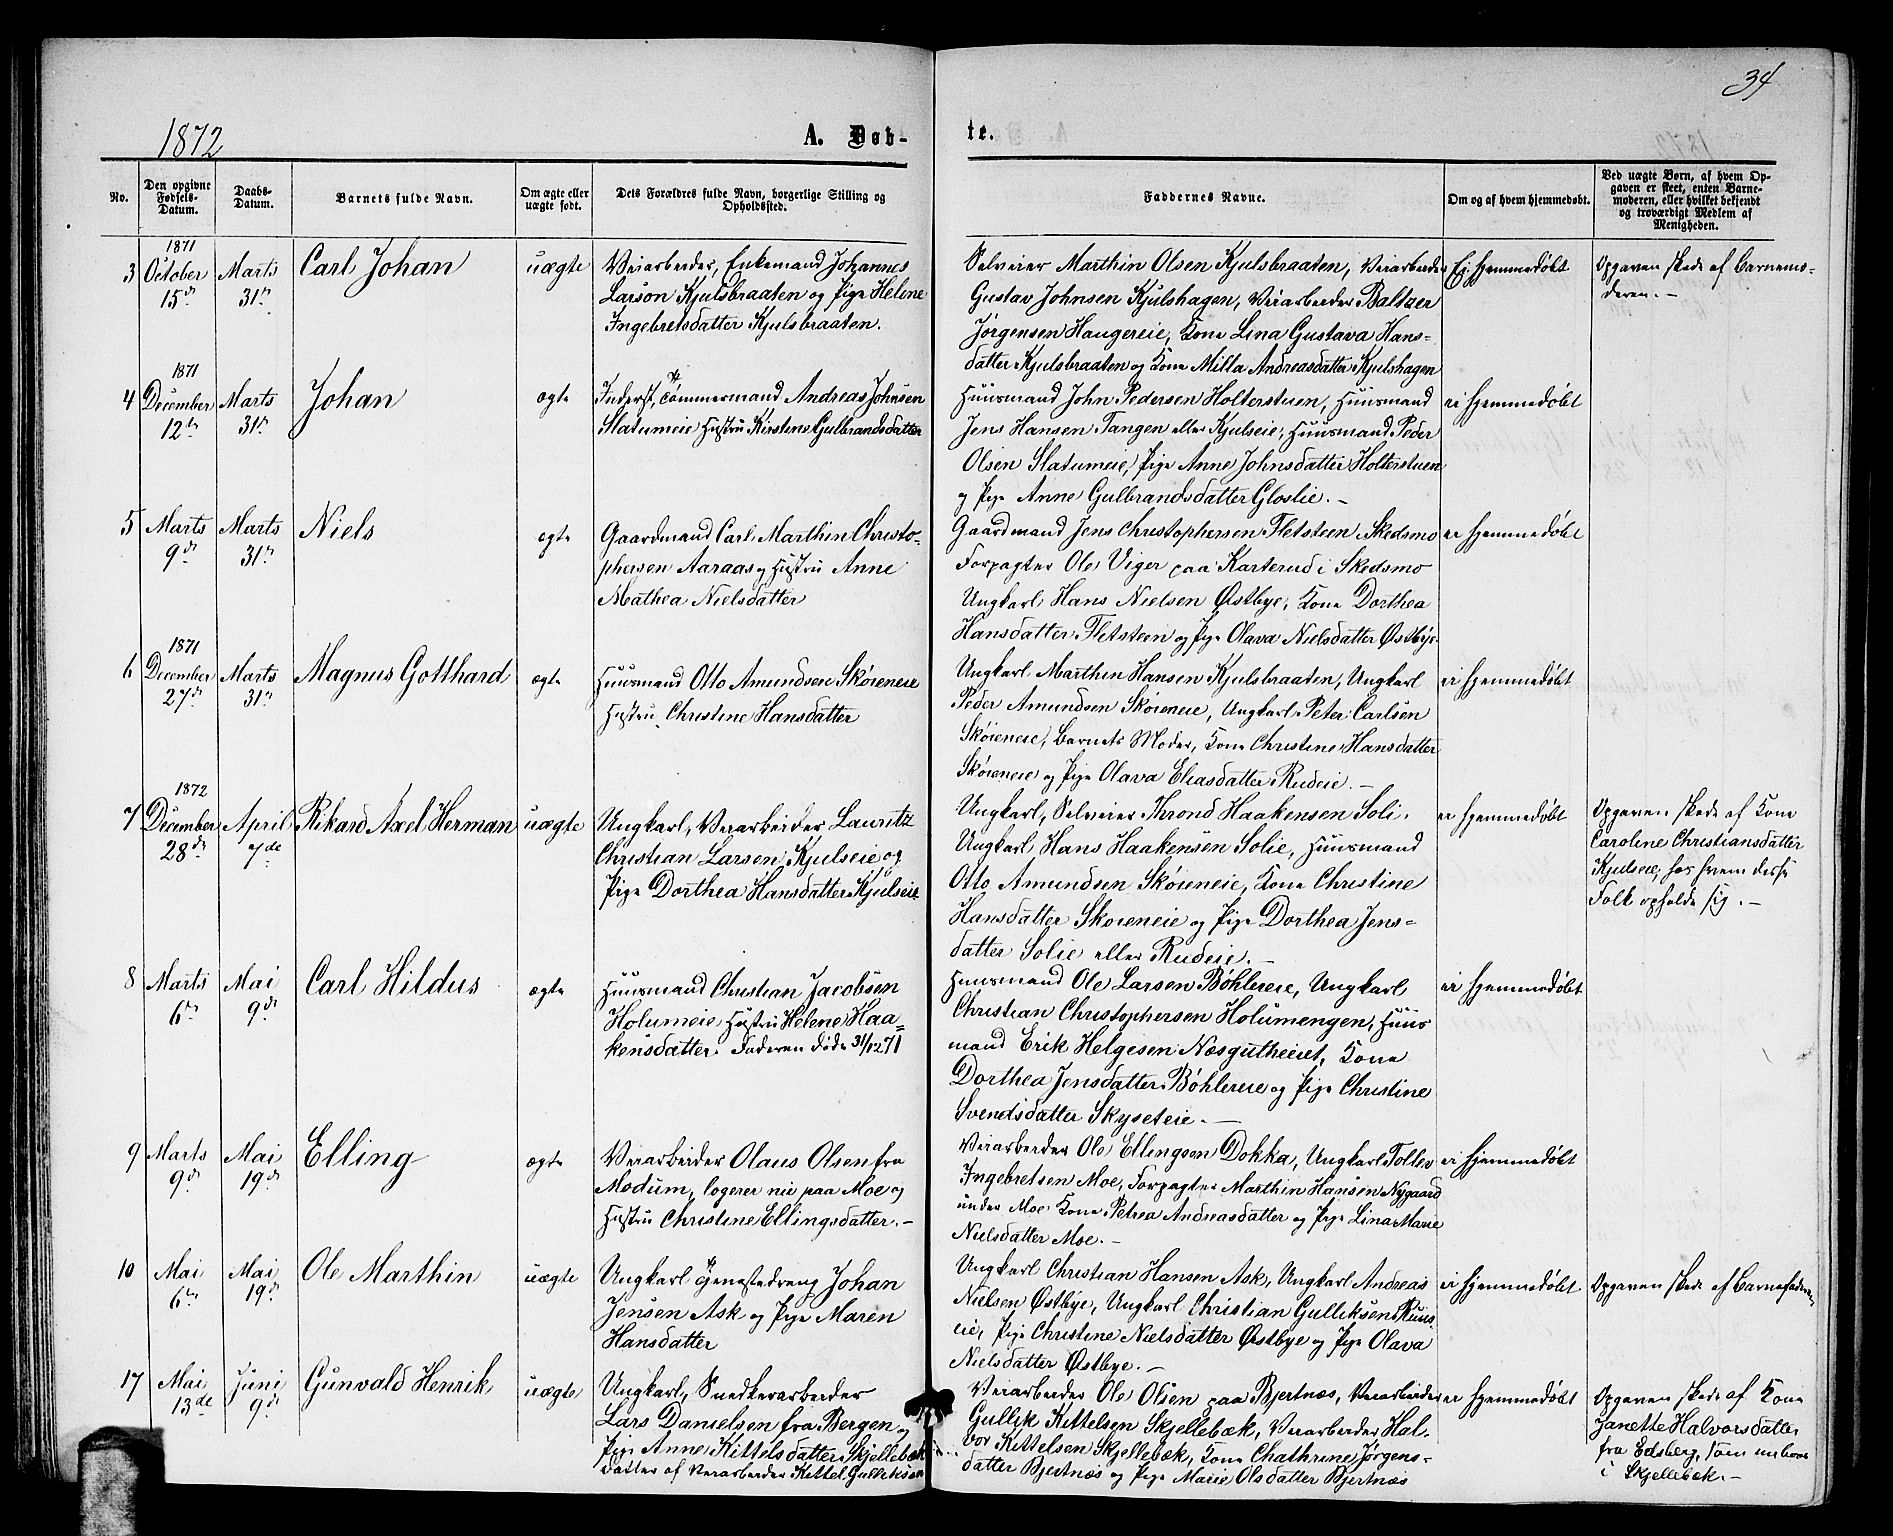 34
1872
A. Døb-
te.
No.
Den opgivne Fødsels-Datum.
Daabs-Datum.
Barnets fulde Navn.
Om ægte eller uægte født.
Dets Forældres fulde Navn, borgerlige Stilling og Opholdssted.
Faddernes Navne.
Om og af hvem hjemmedøbt.
Ved uægte Børn, af hvem Opgaven er skeet, enten Barnemoderen, eller hvilket bekjendt og troværdigt Medlem af Menigheden.
3
1871
October
15de
Marts
31te
Carl Johan
uægte
Veiarbeider, Enkemand Johannes
Larson Kjulsbraaten og Pige Helene
Ingebretsdatter Kjulsbraaten.
Selveier Marthin Olsen Kjulsbraaten, Veiarbeider
Gustav Johnsen Kjulshagen, Veiarbeider Baltzer
Jørgensen Haugereie, Kone Lina Gustava Hans-
datter Kjulsbraaten og Kone Milla Andreasdatter Kjulshagen
Ej hjemmedøbt
Opgaven skede af Barnemo-
deren. -
4
1871
December
12te
Marts
31te
Johan
ægte
Inderst, Tømmermand Andreas Johnsen
Slatumeie Hustru Kirstine Gulbrandsdatter
Huusmand John Pedersen Holterstuen, Huusmand
Jens Hansen Tangen eller Kjulseie, Huusmand Peder
Olsen Slatumeie, Pige Anne Johnsdatter Holterstuen
og Pige Anne Gulbrandsdatter Gloslie. -
ei hjemmedøbt
5
Marts
9de
Marts
31te
Niels
ægte
Gaardmand Carl Marthin Christo-
phersen Aaraas og Hustru Anne
Mathea Nielsdatter
Gaardmand Jens Christophersen Fletsteen Skedsmo
Forpagter Ole Viger paa Karterud i Skedsmo
Ungkarl Hans Nielsen Østbye, Kone Dorthea
Hansdatter Fletsteen og Pige Olava Nielsdatter Østbye
ei hjemmedøbt
6
1871
December
27de
Marts
31te
Magnus Gotthard
ægte
Huusmand Otto Amundsen Skøieneie
Hustru Christine Hansdatter
Ungkarl Marthin Hansen Kjulsbraaten, Ungkarl
Peder Amundsen Skøieneie, Ungkarl Peter Carlsen
Skøieneie, Barnets Moder, Kone Christine Hansdatter
Skøieneie og Pige Olava Eliasdatter Rudeie. -
ei hjemmedøbt
7
1872
December
28de
April
7de
Rikard Axel Herman
uægte
Ungkarl, Veiarbeider Lauritz
Christian Larsen Kjulseie og
Pige Dorthea Hansdatter Kjulseie
Ungkarl, Selveier Thrond Haakensen Soli.
Ungkarl Hans Haakensen Solie, Huusmand
Otto Amundsen Skøieneie, Kone Christine
Hansdatter Skøieneie og Pige Dorthea Jens-
datter Solie eller Rudeie. -
ei hjemmedøbt
Opgaven skede af Kone
Caroline Christiansdatter
Kjulseie, hos hvem disse
Folk opholde sig. -
8
Marts
6te
Mai
9de
Carl Hildus
ægte
Huusmand Christian Jacobsen
Holumeie Hustru Helene Haa-
kensdatter. Faderen døde 31/12 71
Huusmand Ole Larsen Bøhlereie, Ungkarl
Christian Christophersen Holumengen, Huus
mand Erik Helgesen Næsgutheiet, Kone
Dorthea Jensdatter Bøhlereie og Pige Christine
Svendsdatter Skyseteie. -
ei hjemmedøbt
9
Marts
9de
Mai
19de
Elling
ægte
Veiarbeider Olaus Olsen fra
Modum, logerer nu paa Moe og
Hustru Christine Ellingsdatter. -
Veiarbeider Ole Ellingsen Dokka, Ungkarl Tollev
Ingebretsen Moe, Forpagter Marthin Hansen Nygaard
under Moe Kone Petrea Andreasdatter og Pige Lina Marie
Nielsdatter Moe. -
ei hjemmedøbt
10
Mai
6te
Mai
19de
Ole Marthin
uægte
Ungkarl Tjenestedreng Johan
Jensen Ask og Pige Maren
Hansdatter
Ungkarl Christian Hansen Ask, Ungkarl Andreas
Nielsen Østbye, Ungkarl Christian Gulliksen Ruus
eie, Pige Christine Nielsdatter Østbye og Pige Olava
Nielsdatter Østbye. -
ei hjemmedøbt
Opgaven skede af Barnefaderen
17
Mai
13de
Juni
9de
Gunvald Henrik
uægte
Ungkarl, Snedkerarbeider
Lars Danielsen fra Bergen og
Pige Anne Kittelsdatter Skjellebæk
datter af Veiarbeider Kittel Gulliksen
Veiarbeider Ole Olsen paa Bjertnæs, Veiarbeider
Gullik Kittelsen Skjellebæk, Veiarbeider Hal-
vor Kittelsen Skjellebæk, Kone Chathrine Jørgens-
datter Bjertnæs og Pige Marie Olsdatter Bjertnæs
ei hjemmedøbt
Opgaven skede af Kone
Janette Halvorsdatter
fra Edsberg, som nu boer
i Skjellebæk. -